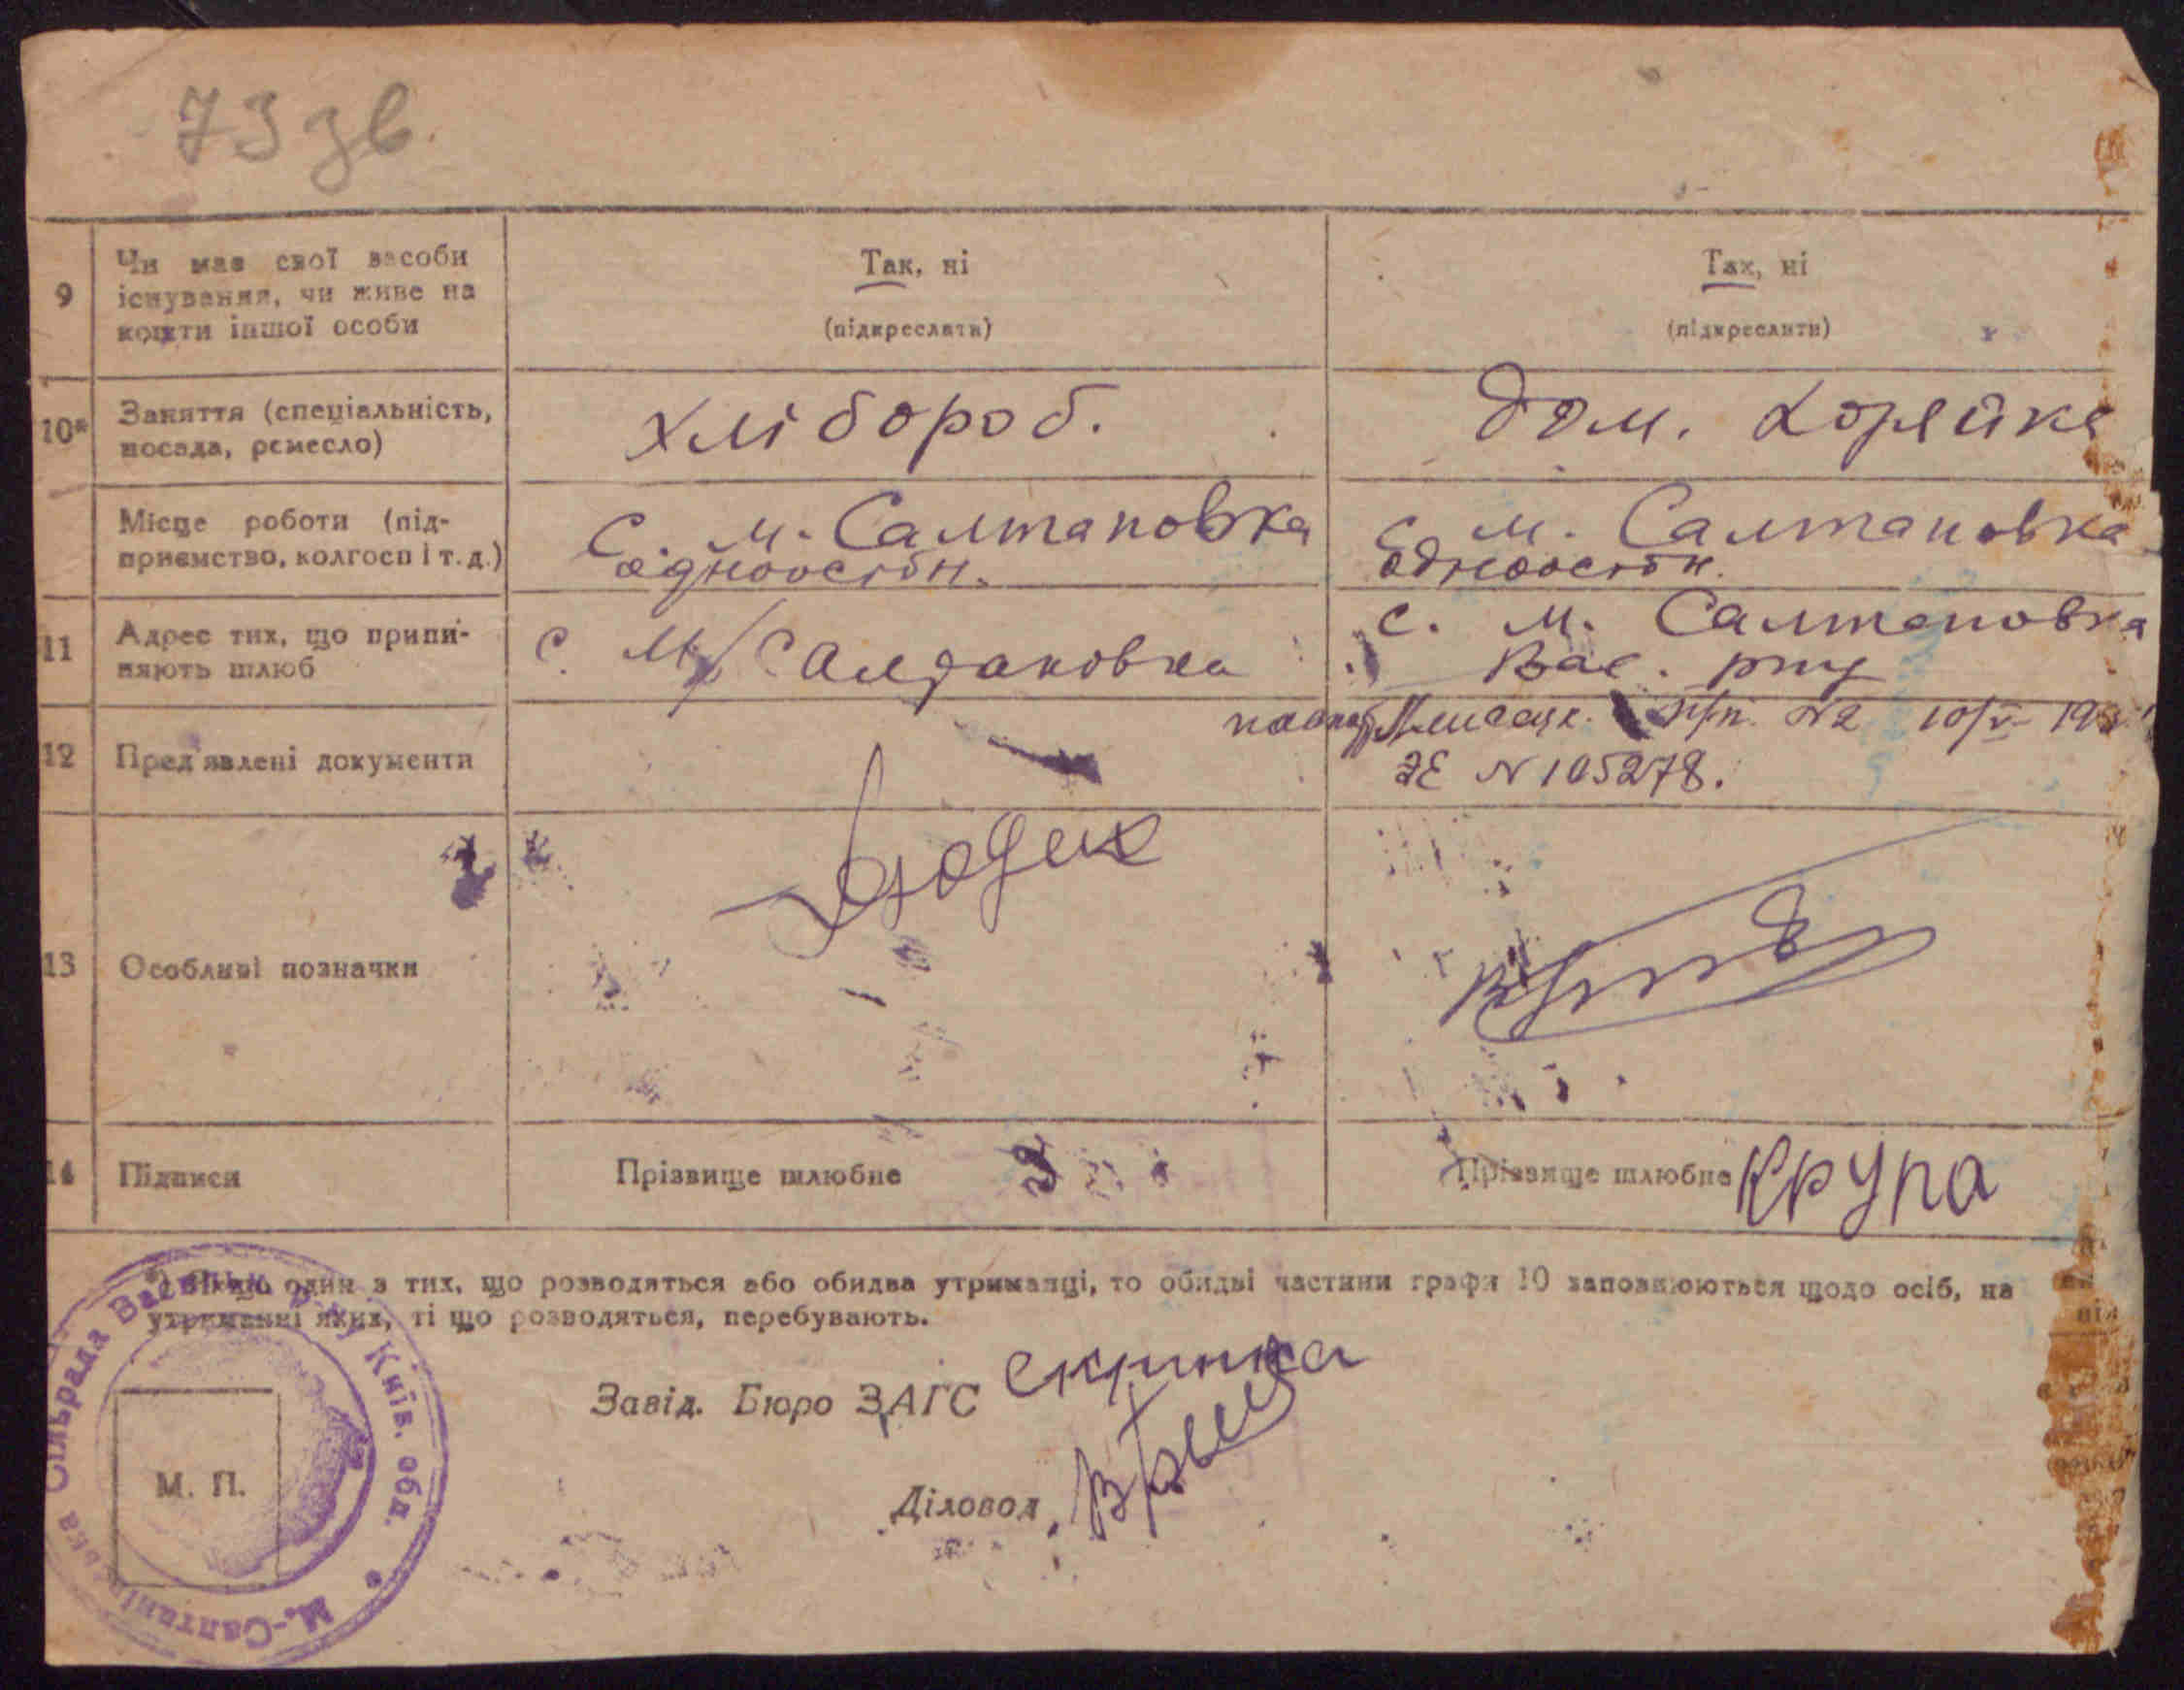 73 зв.
9
Чи має свої засоби
існування, чи живе на
кошти іншої особи
Так, ні
(підкреслити)
Так, ні
(підкреслити)
10*
Заняття (спеціальність,
посада, ремесло)
хлібороб.
дом. хоряйка
Місце роботи (під-
приємство, колгосп і т. д.)
С. м. Салтановка
одноосібн.
с. м. Салтановка
одноосібн.
11
Адрес тих, що припи-
няють шлюб
с. М. Салтановка
с. м. Салтановка
Вас. р-ну
12
Пред'явлені документи
№ 2 10/V-
ЗЕ N 105278.
13
Особливі позначки
14
Підписи
Прізвище шлюбне
Прізвище шлюбне Крупа
*) Якщо один з тих, що розводяться або обидва утриманці, то обидві частини графи 10 заповнюються щодо осіб, на
утриманні яких, ті що розводяться, перебувають.
Завід. Бюро ЗАГС
Діловод
М. П.
М.-Салтанівська Сільрада Васильк. р-ну Київ. обл.